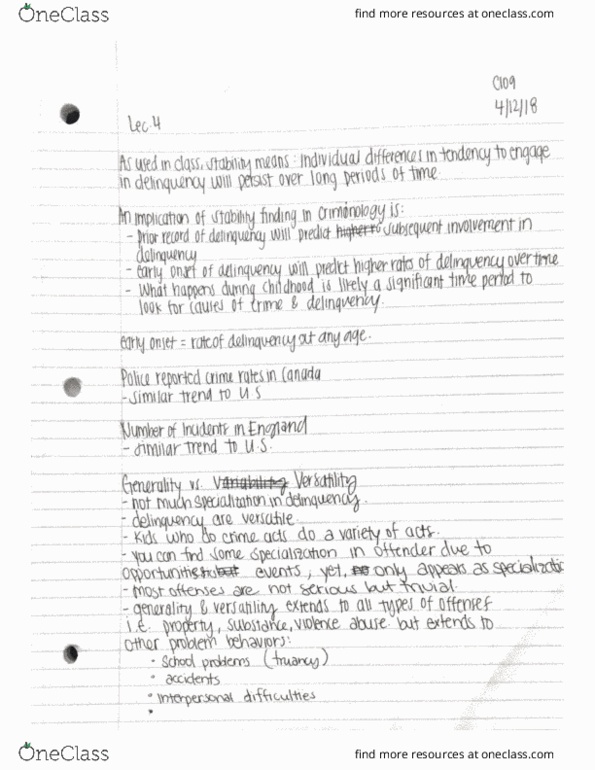 OneClass
find more resources at oneclass.com
C109
4/12/18
Lec. 4
As used in class, stability means: Individual differences in tendency to engage
in delinquency will persist over long periods of time.
An implication of stability finding in Criminology is:
- prior record of delinquency will predict higher to subsequent involvement in
delinquency
- early onset of delinquency will predict higher rates of delinquency over time
- What happens during childhood is likely a significant time period to
look for causes of crime & delinquency.
Early onset = rate of delinquency at any age.
Police reported crime rates in Canada
- similar trend to U S
Number of Incidents in England
- similar trend to U.S.
Generality vs. Variability Versatility
- not much specialization in delinquency.
- delinquency are versatile.
- Kids who do crime acts do a variety of acts.
- you can find some specialization in offender due to
opportunities events, yet, only appears as specializatio
- most offenses are not serious but trivial.
- generality & versatility extends to all types of offenses
i.e. property, substance, violence abuse but extends to
other problem behaviors:
• School problems (truancy)
• accidents
• interpersonal difficulties
•
OneClass
find more resources at oneclass.com